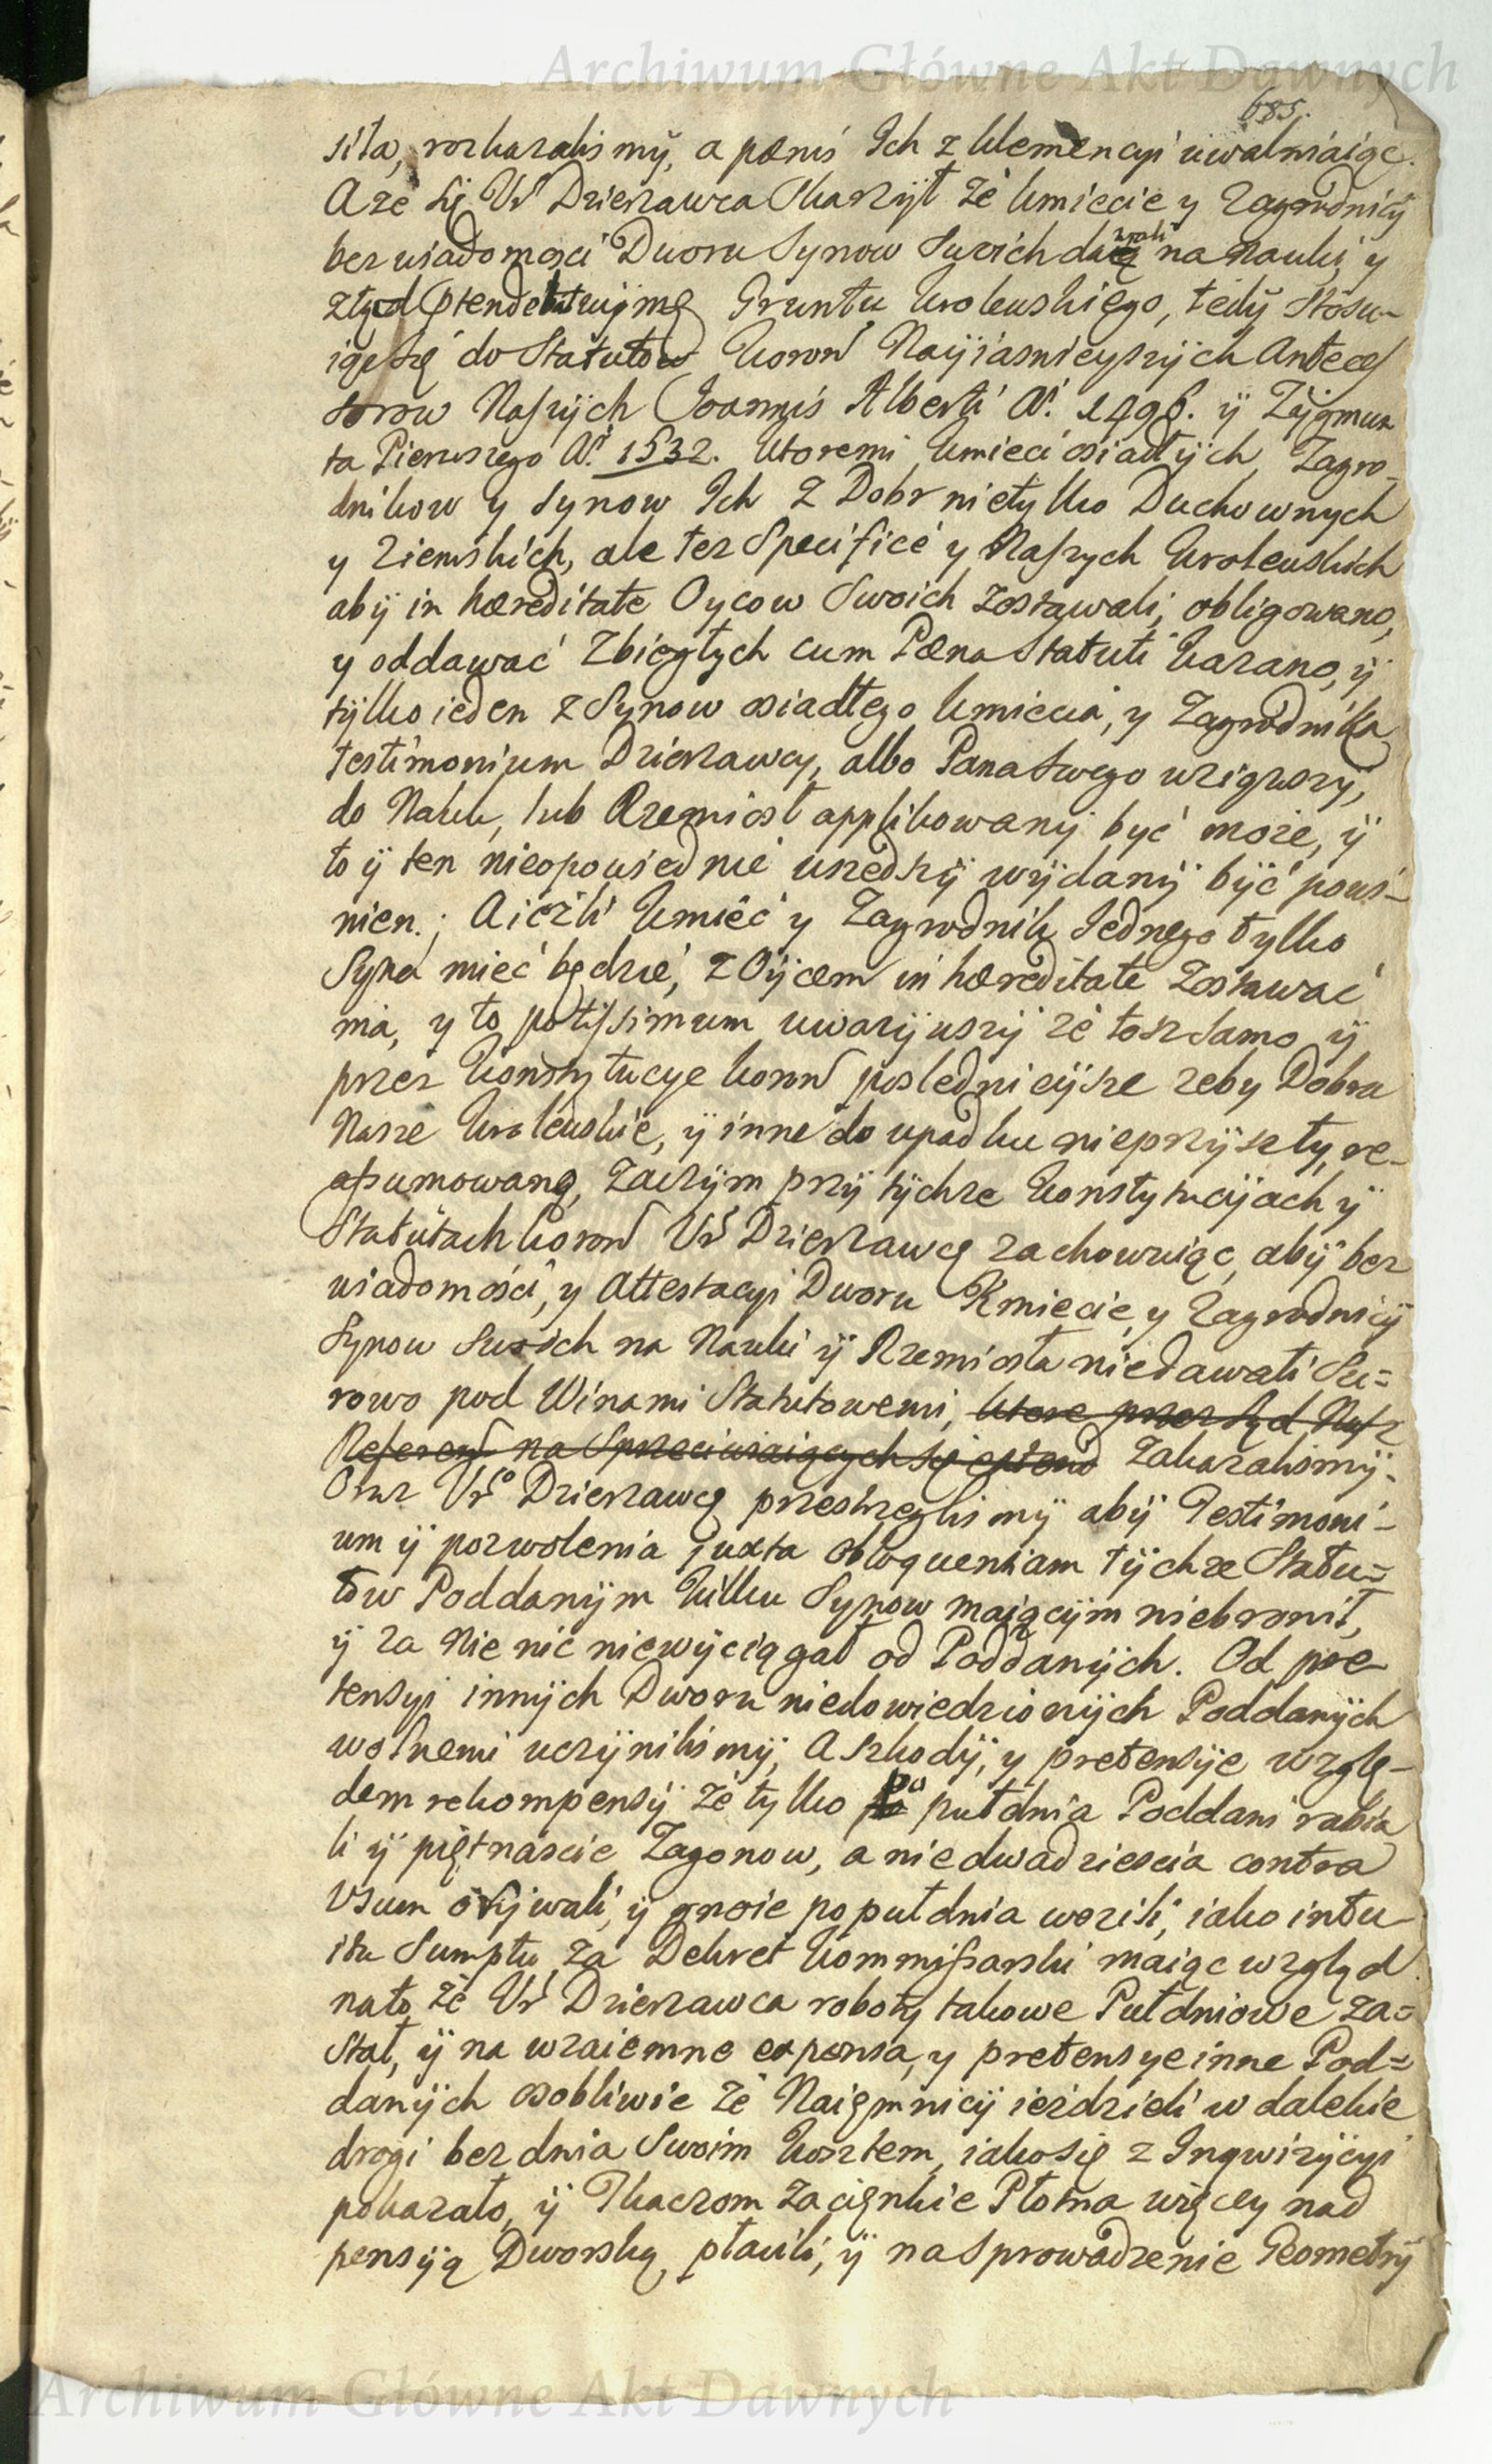 Archiwum Główne Akt Dawnych
685.
siła, rozkazalismÿ, a pænis Ich z klemencyi uwalniaiąc.
A ze się Ur Dzierzawca skarzÿł ze kmiecie y Zagrodnicÿ
bez wiadomosci Dworu Synow Swoich dawali na nauki, y
ztąd Gruntu krolewskiego, tedÿ stosu-
iąc się do Statutow koron Naÿiasnieyszÿch Anteces
sorow Naszÿch Joannis Alberti Aº. 1496. ÿ Zÿgmun
ta Pierwszego Aº. 1532. ktoremi kmieci osiadłÿch, Zagro-
dnikow y synow Ich z Dobr nietylko Duchownych
y Ziemskich, ale tez Specificè y Naszych krolewskich
abÿ in hæreditate Oycow Swoich zostawali, obligowano,
y oddawać zbiegłych cum Pæna Statuti kazano, ÿ
tÿlko ieden z Synow osiadłego kmiecia, y Zagrodnika
testimonium Dzierzawcy, albo Pana Swego wziąwszy,
do Nauk, lub Rzemiosł applikowanÿ być może, ÿ
to ÿ ten nieopowiednie uszedszÿ wÿdanÿ bÿć powi-
nien.; A ieżli kmieć y Zagrodnik Jednego tylko
Syna mieć będzie, z Oÿcem in hæreditate zostawać
ma, y to potissimum uwazÿwszÿ ze tosz samo ÿ
przez konstytucye koron poslednieÿsze zeby Dobra
Nasze krolewskie, ÿ inne do upadku nieprzÿszły, re-
assumowano, zaczÿm przÿ tÿchze konstytucÿiach ÿ
Statutach koron Ur Dzierzawcę zachowuiąc, abÿ bez
wiadomości, y Attestacyi Dworu Kmiecie, y Zagrodnicÿ
Synow Swoich na Nauki ÿ Rzemiosła niedawali Su=
rowo pod Winami Statutowemi, ktore przez Sąd Nasz
Referen na Sprzeciwiaiących się zakazalismÿ.
Oraz Urgo Dzierzawcę przestrzeglismÿ abÿ Testimoni-
um ÿ pozwolenia juxta obloquentiam tÿchze Statu=
tow Poddanÿm kilku Synow maiącÿm niebronił,
ÿ za nie nic niewÿciągał od Poddanÿch. Od pre-
tensyi innÿch Dworu niedowiedzionÿch Poddanÿch
wolnemi uczÿnilismÿ, A szkodÿ, y pretensÿe wzglę-
dem rekompensÿ ze tylko po puł dnia Poddani rabia
li ÿ piętnascie Zagonow, a nie dwadziescia contra
Usum orÿwali, ÿ gnoie po puł dnia wozili, iako intu
itu Sumptu za Dekret kommissarski maiąc wzgląd
nato ze Ur Dzierzawca roboty takowe Pułdniowe za=
stał, ÿ na wzaiemne expensa, y pretensye inne Pod=
danÿch osobliwie ze Naięmnicÿ ieździeli w dalekie
drogi bez dnia Swoim kosztem, iako się z Inqwizÿcyi
pokazało, ÿ Tkaczom za cięnkie Płotna więcey nad
pensÿą Dworską płacili, ÿ na sprowadzenie Geometrÿ
Archiwum Główne Akt Dawnych